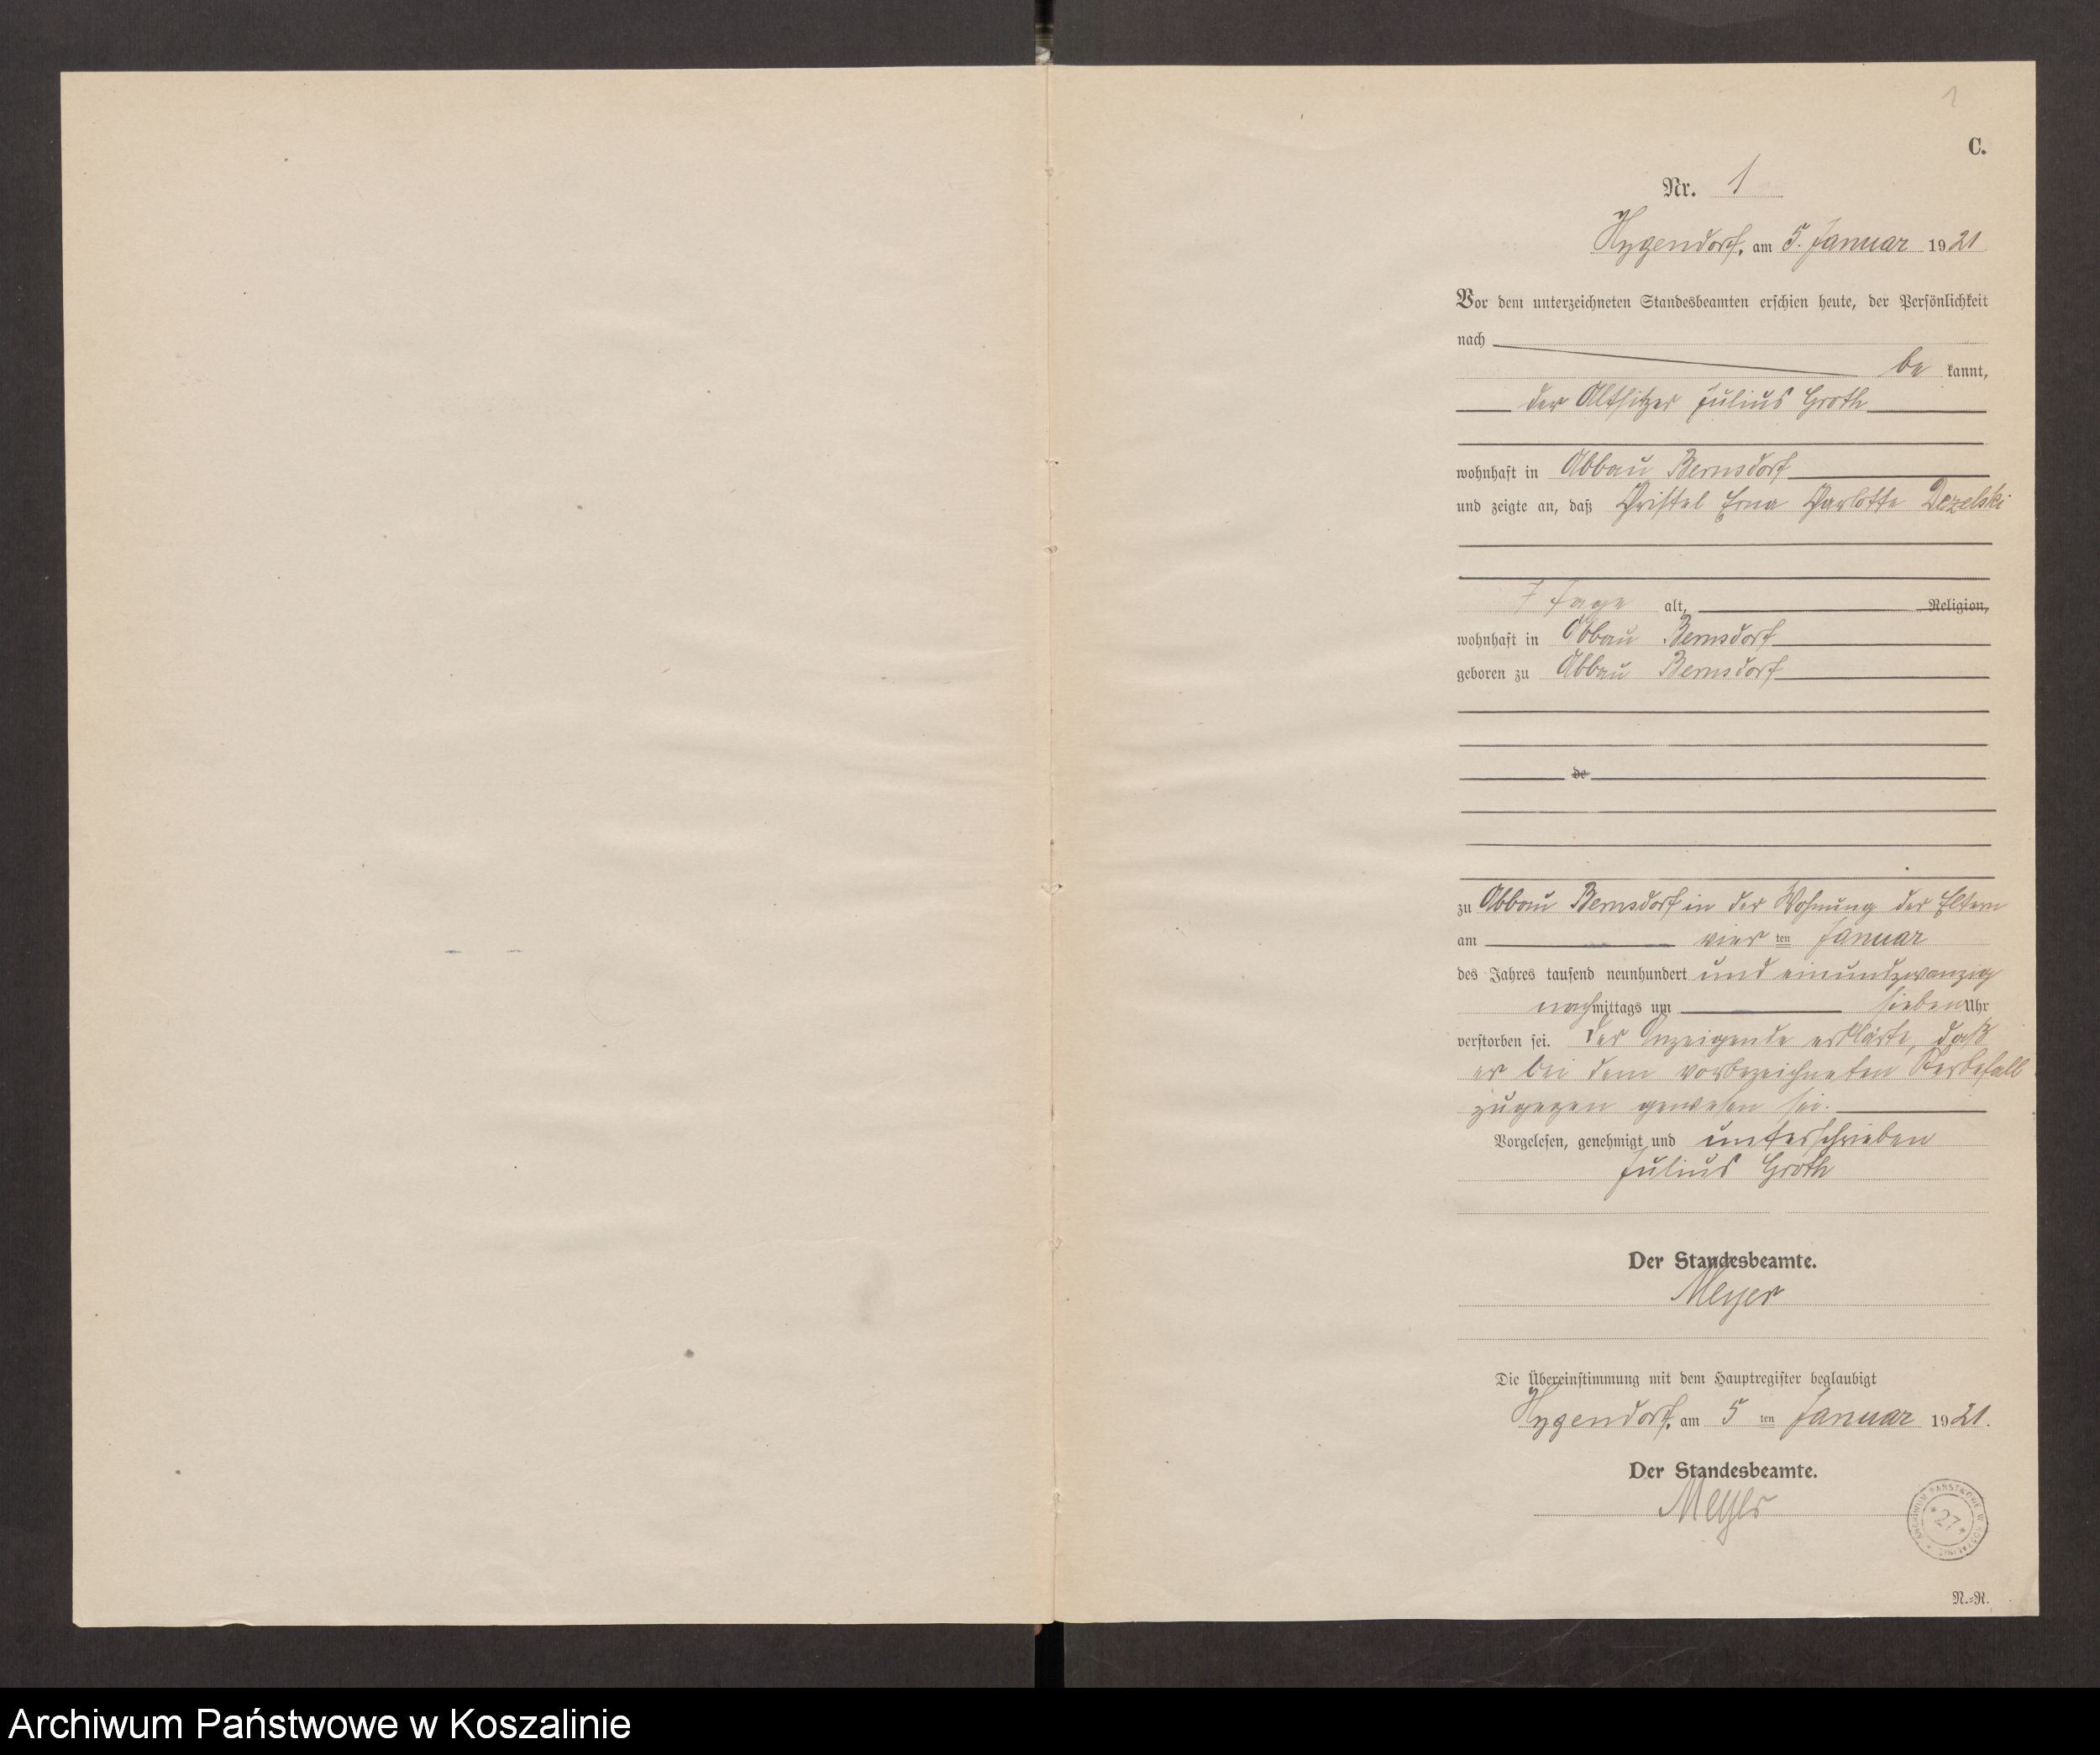 1
C.
Nr. 1
Hygendorf, am 5. Januar 1921
Vor dem unterzeichneten Standesbeamten erschien heute, der Persönlichkeit
nach
be kannt,
der Altsitzer Julius Groth
wohnhaft in Abbau Bernsdorf
und zeigte an, daß Christel Erna Charlotte Dezelski
7 Tage alt, Religion,
wohnhaft in Abbau Bernsdorf
geboren zu Abbau Bernsdorf
de
zu Abbau Bernsdorf in der Wohnung der Eltern
am vier ten Januar
des Jahres tausend neunhundert und einundzwanzig
nachmittags um sieben Uhr
verstorben sei. Der Anzeigende erklärte, daß
er bei dem vorbezeichneten Sterbefall
zugegen gewesen sei.
Vorgelesen, genehmigt und unterschrieben
Julius Groth
Der Standesbeamte.
Meyer
Die Übereinstimmung mit dem Hauptregister beglaubigt
Hygendorf, am 5 ten Januar 1921.
Der Standesbeamte.
Meyer
ARCHIWUM PAŃSTWOWE W KOSZALINIE
*27*
N.-R.
Archiwum Państwowe w Koszalinie